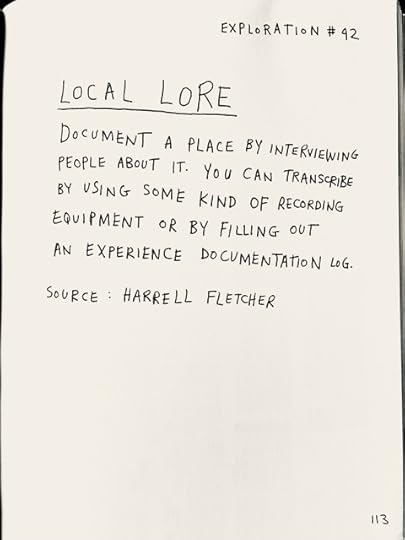 EXPLORATION #42
LOCAL LORE
DOCUMENT A PLACE BY INTERVIEWING
PEOPLE ABOUT IT. YOU CAN TRANSCRIBE
BY USING SOME KIND OF RECORDING
EQUIPMENT OR BY FILLING OUT
AN EXPERIENCE DOCUMENTATION LOG.
SOURCE : HARRELL FLETCHER
113